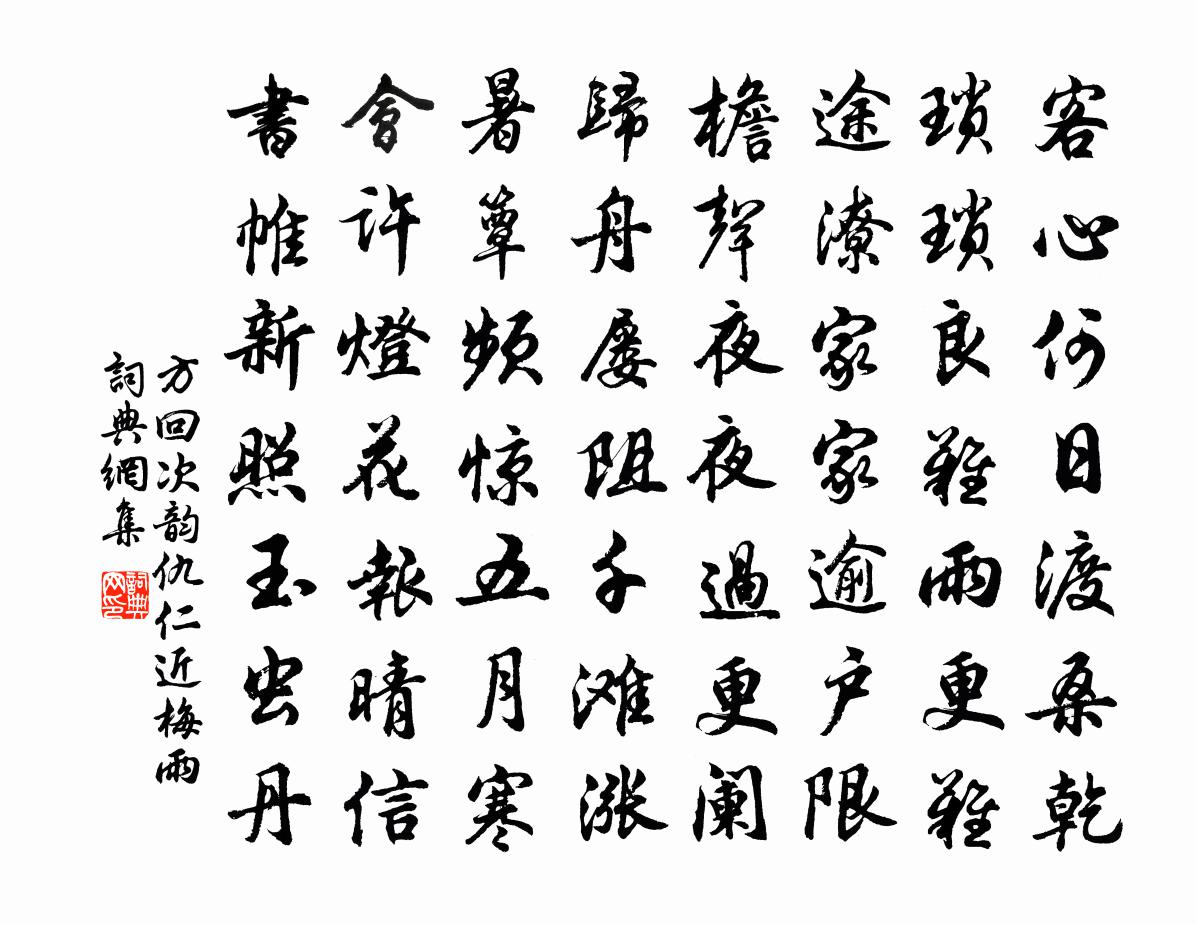 客心何日渡桑乾
瑣瑣良難雨更難
途潦家家逾户限
檐聲夜夜過更阑
歸舟屡阻千滩漲
暑簟頻惊五月寒
會許燈花報晴信
書帷新照玉虫丹
方回次韵仇仁近梅雨
詞典網集
詞典网印